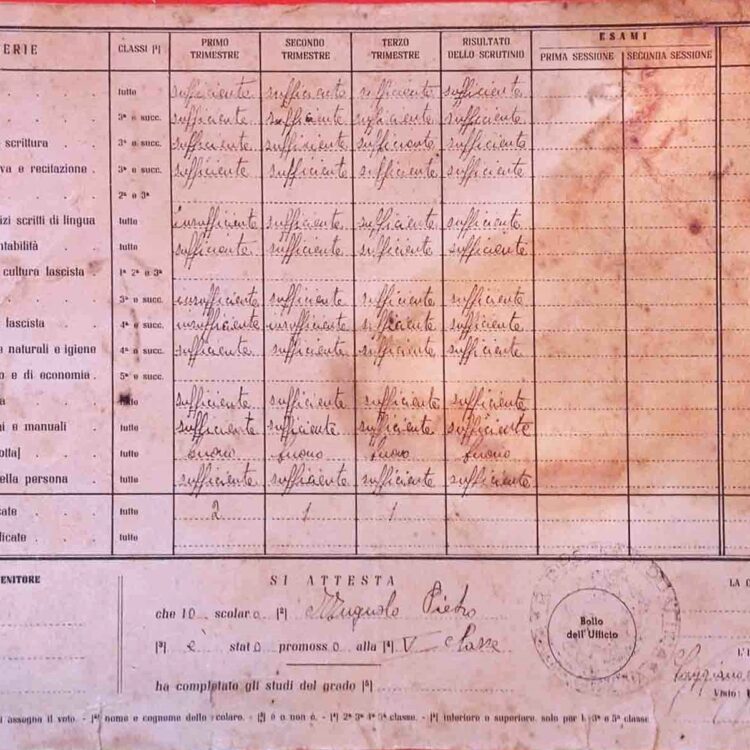 ERIE CLASSI PRIMO TRIMESTRE SECONDO TRIMESTRE TERZO TRIMESTRE RISULTATO DELLO SCRUTINIO ESAMI PRIMA SESSIONE SECONDA SESSIONE
tutte sufficiente sufficiente sufficiente sufficiente
3ª e succ. sufficiente sufficiente sufficiente sufficiente
scrittura 3ª e succ. sufficiente sufficiente sufficiente sufficiente
va e recitazione 3ª e succ. sufficiente sufficiente sufficiente sufficiente
2ª e 3ª
izi scritti di lingua tutte insufficiente sufficiente sufficiente sufficiente
ntabilità tutte sufficiente sufficiente sufficiente sufficiente
cultura fascista 1ª 2ª e 3ª
3ª e succ. insufficiente sufficiente sufficiente sufficiente
fascista 4ª e succ. insufficiente insufficiente sufficiente sufficiente
e naturali e igiene 4ª e succ. sufficiente sufficiente sufficiente sufficiente
o e di economia 5ª e succ.
a tutte sufficiente sufficiente sufficiente sufficiente
ni e manuali tutte sufficiente sufficiente sufficiente sufficiente
olta] tutte buono buono buono buono
ella persona tutte sufficiente sufficiente sufficiente sufficiente
cate tutte 2 1 1
ificate tutte
ENITORE SI ATTESTA LA
che lo scolaro Pietro
è stato promosso alla V classe
Bollo dell'Ufficio
ha completato gli studi del grado
Visto:
assegna il voto. - nome e cognome dello scolaro. - è o non è. - 2ª 3ª 4ª 5ª classe. - inferiore o superiore solo per la 3ª e 5ª classe